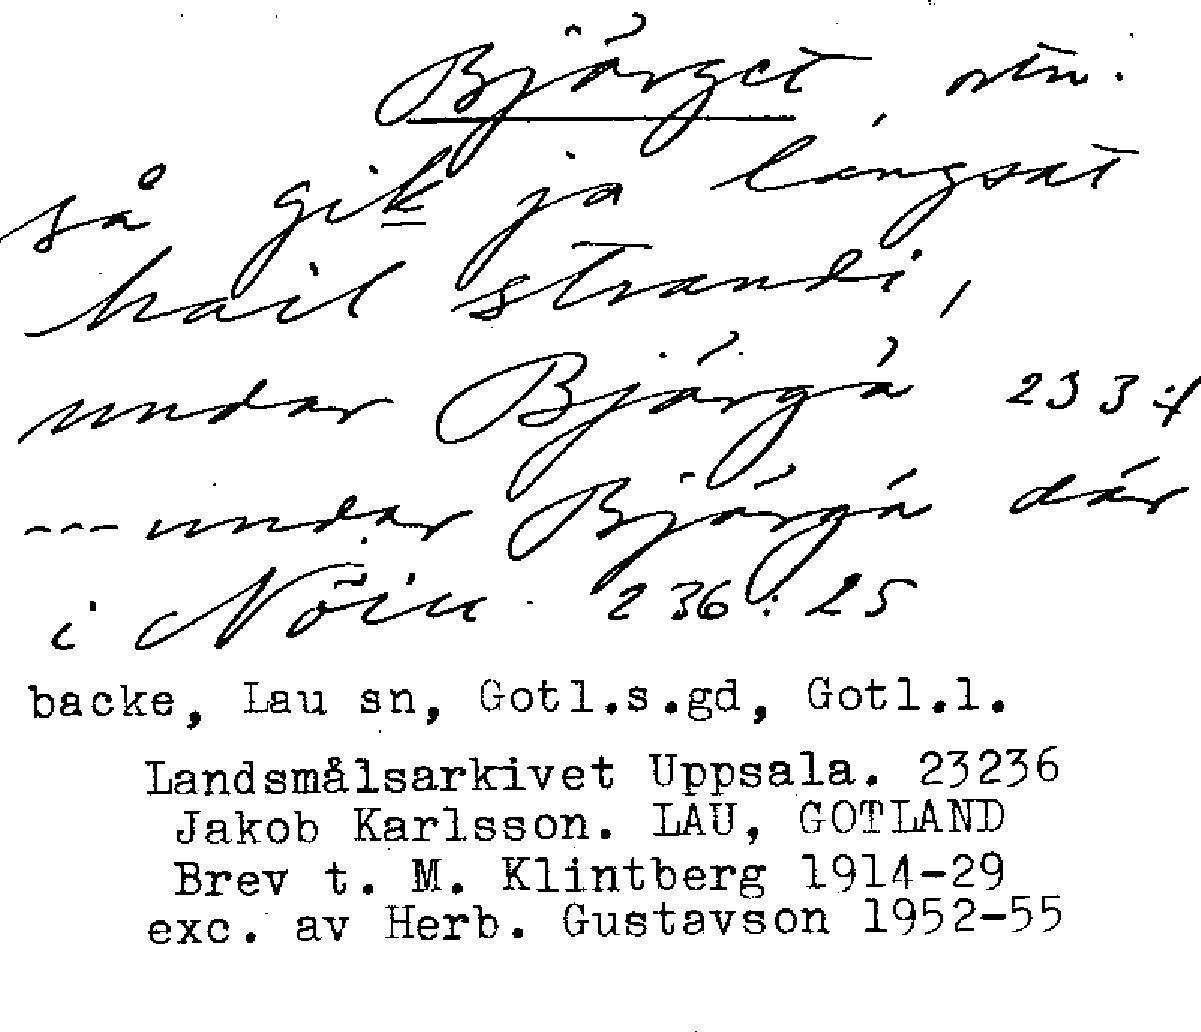 Bjärget, ortn.
så gik ja längsät
hail strandi,
undar Bjärgä 233:4
---undar Bjärgä där
i Nöiu. 236:25
backe, Lau sn, Gotl.s.gd, Gotl.l.
Landsmålsarkivet Uppsala. 23236
Jakob Karlsson. LAU, GOTLAND
Brev t. M. Klintberg 1914-29
exc. av Herb. Gustavson 1952-55